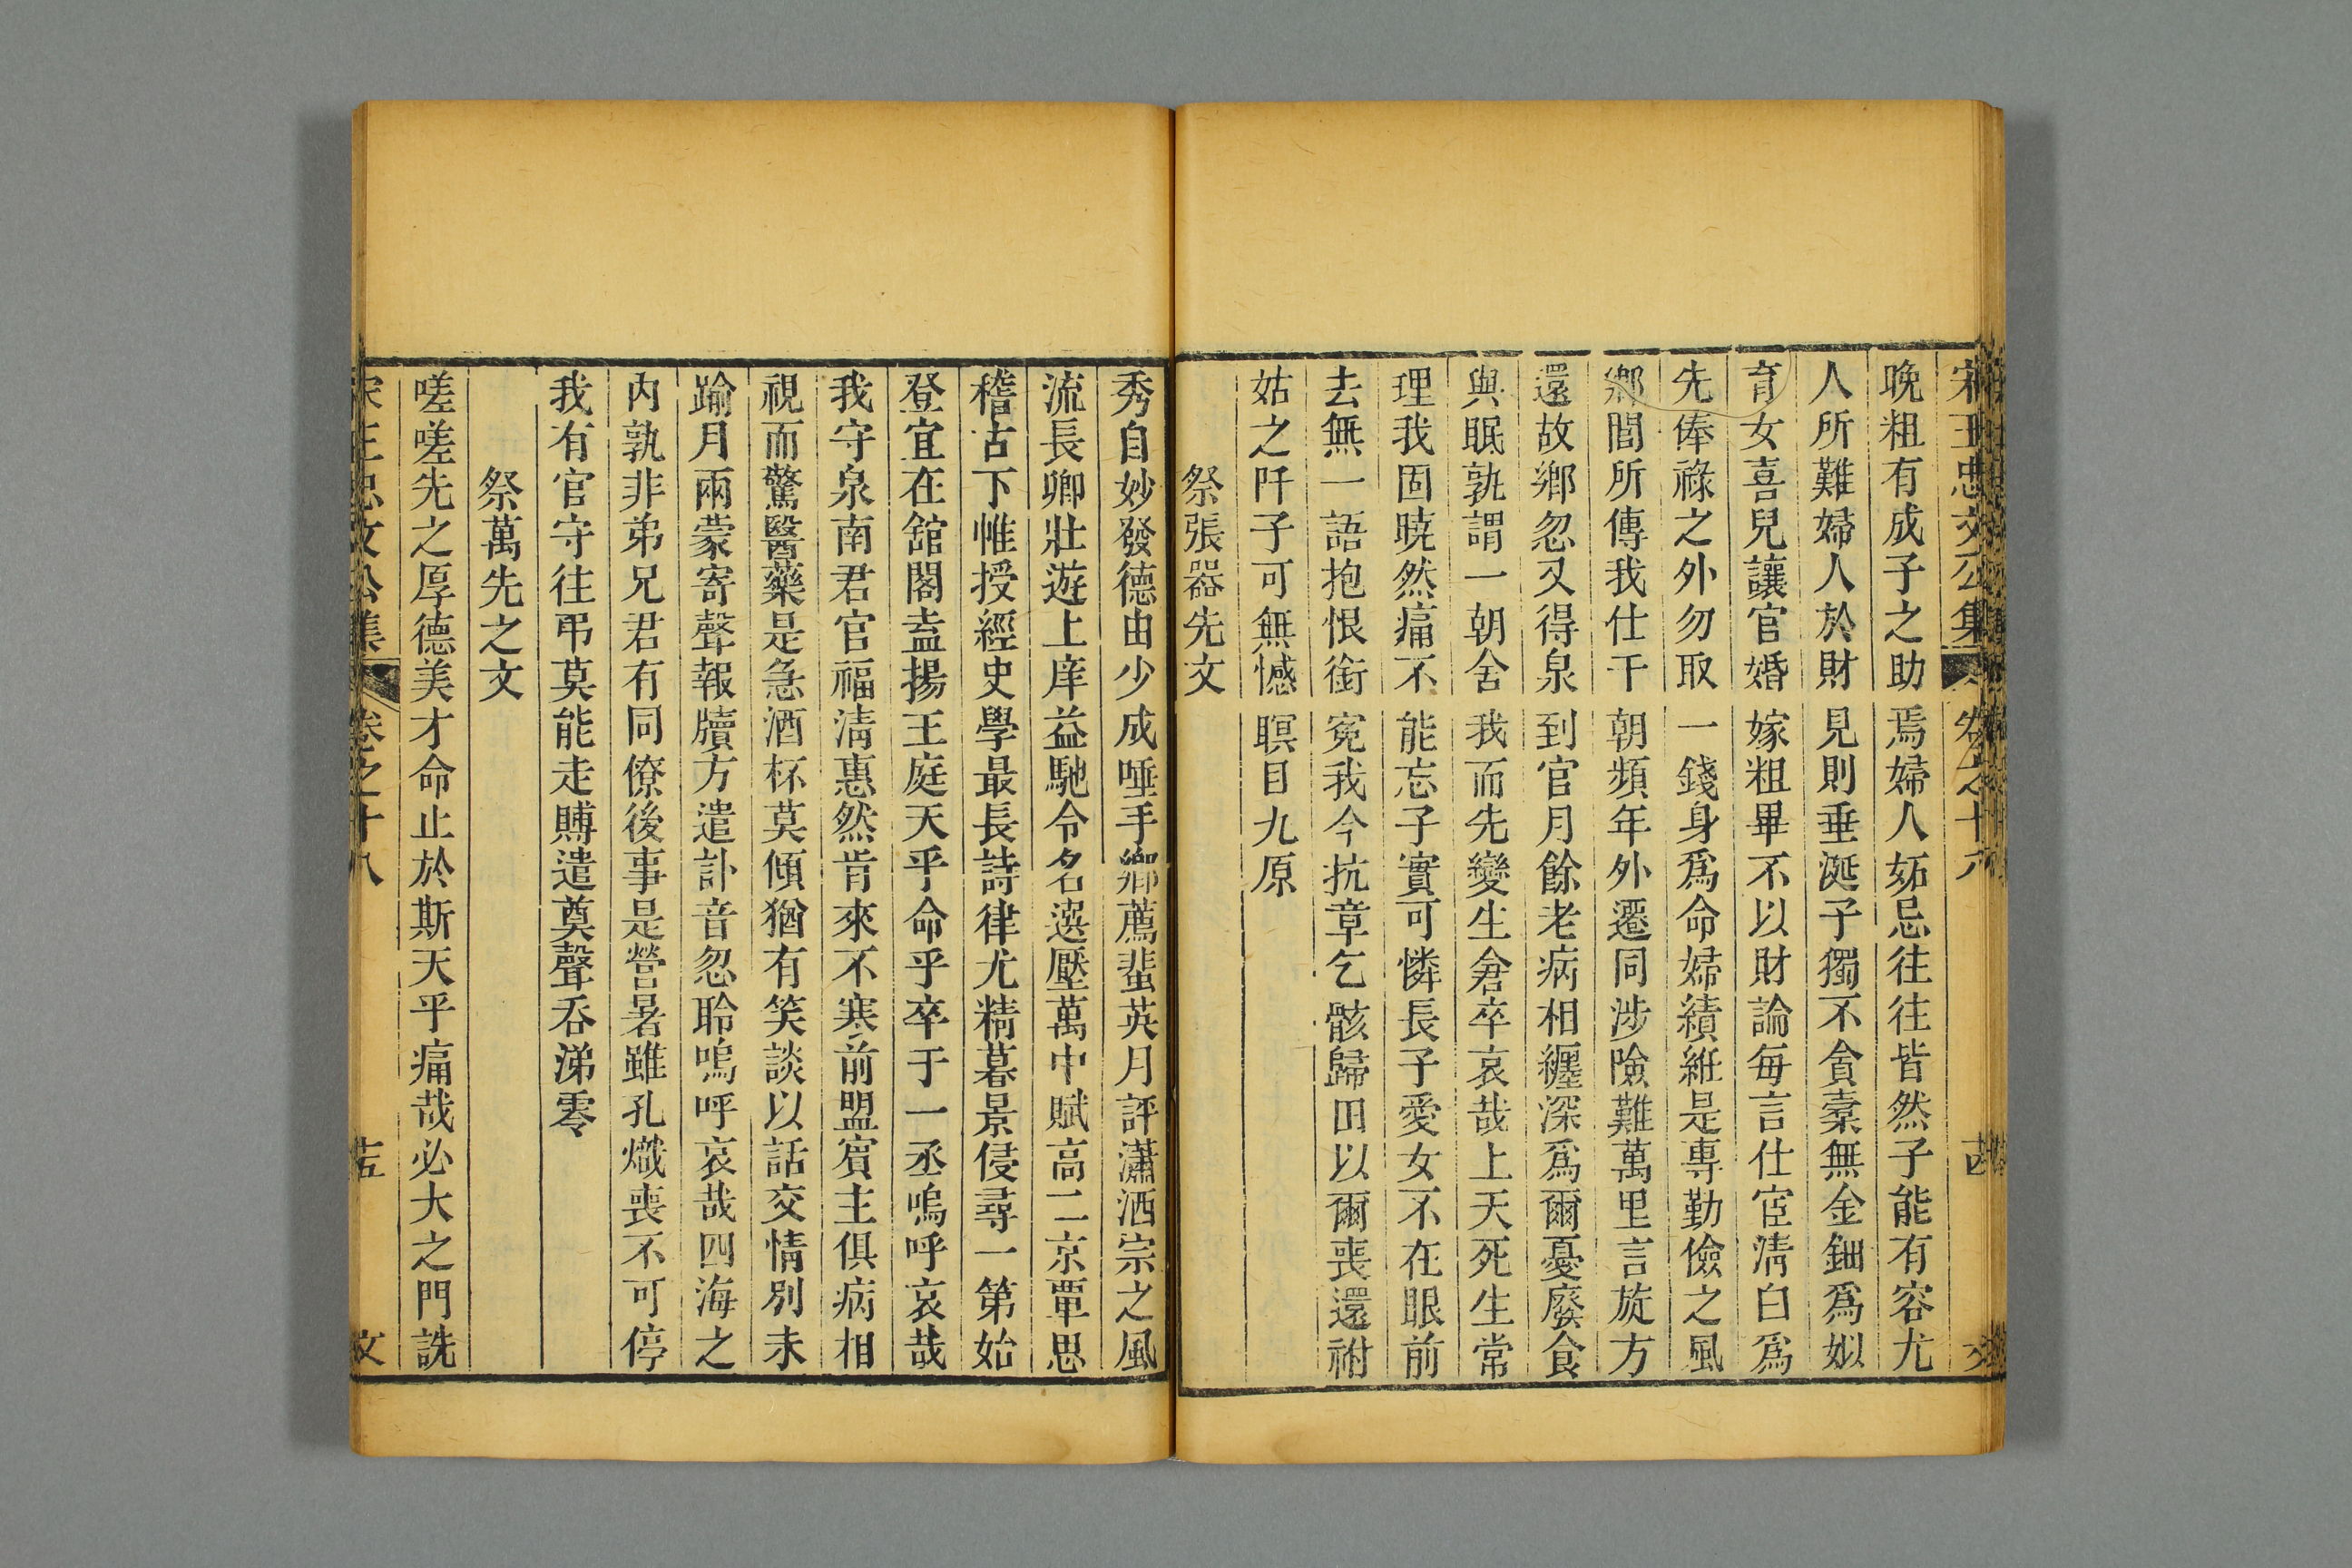 宋王忠文公集 卷之十八 古 文
晚粗有成子之助焉婦人妬忌往往皆然子能有容尤
人所難婦人於財見則垂涎子獨不貪橐無金鈿爲姒
育女喜兒讓官婚嫁粗畢不以財論每言仕宦淸白爲
先俸祿之外勿取一錢身爲命婦績絍是專勤儉之風
鄉閭所傳我仕于朝頻年外遷同涉險難萬里言旋方
還故鄉忽又得泉到官月餘老病相纒深爲爾憂廢食
與眠孰謂一朝舍我而先變生倉卒哀哉上天死生常
理我固曉然痛不能忘子實可憐長子愛女不在眼前
去無一語抱恨銜寃我今抗章乞骸歸田以爾喪還祔
姑之阡子可無憾瞑目九原
祭張器先文
秀自妙發德由少成唾手鄉薦蜚英月評瀟洒宗之風
流長卿壯遊上庠益馳令名選壓萬中賦高二京覃思
稽古下帷授經史學最長詩律尤精暮景侵尋一第始
登宜在舘閣盍揚王庭天乎命乎卒于一丞嗚呼哀哉
我守泉南君官福淸惠然肯來不寒前盟賔主俱病相
視而驚醫藥是急酒杯莫傾猶有笑談以話交情別未
踰月兩蒙寄聲報牘方遣訃音忽聆嗚呼哀哉四海之
內孰非弟兄君有同僚後事是營暑雖孔熾喪不可停
我有官守往弔莫能走賻遣奠聲吞涕零
祭萬先之文
嗟嗟先之厚德美才命止於斯天乎痛哉必大之門詵
宋王忠文公集 卷之十八 十五 文